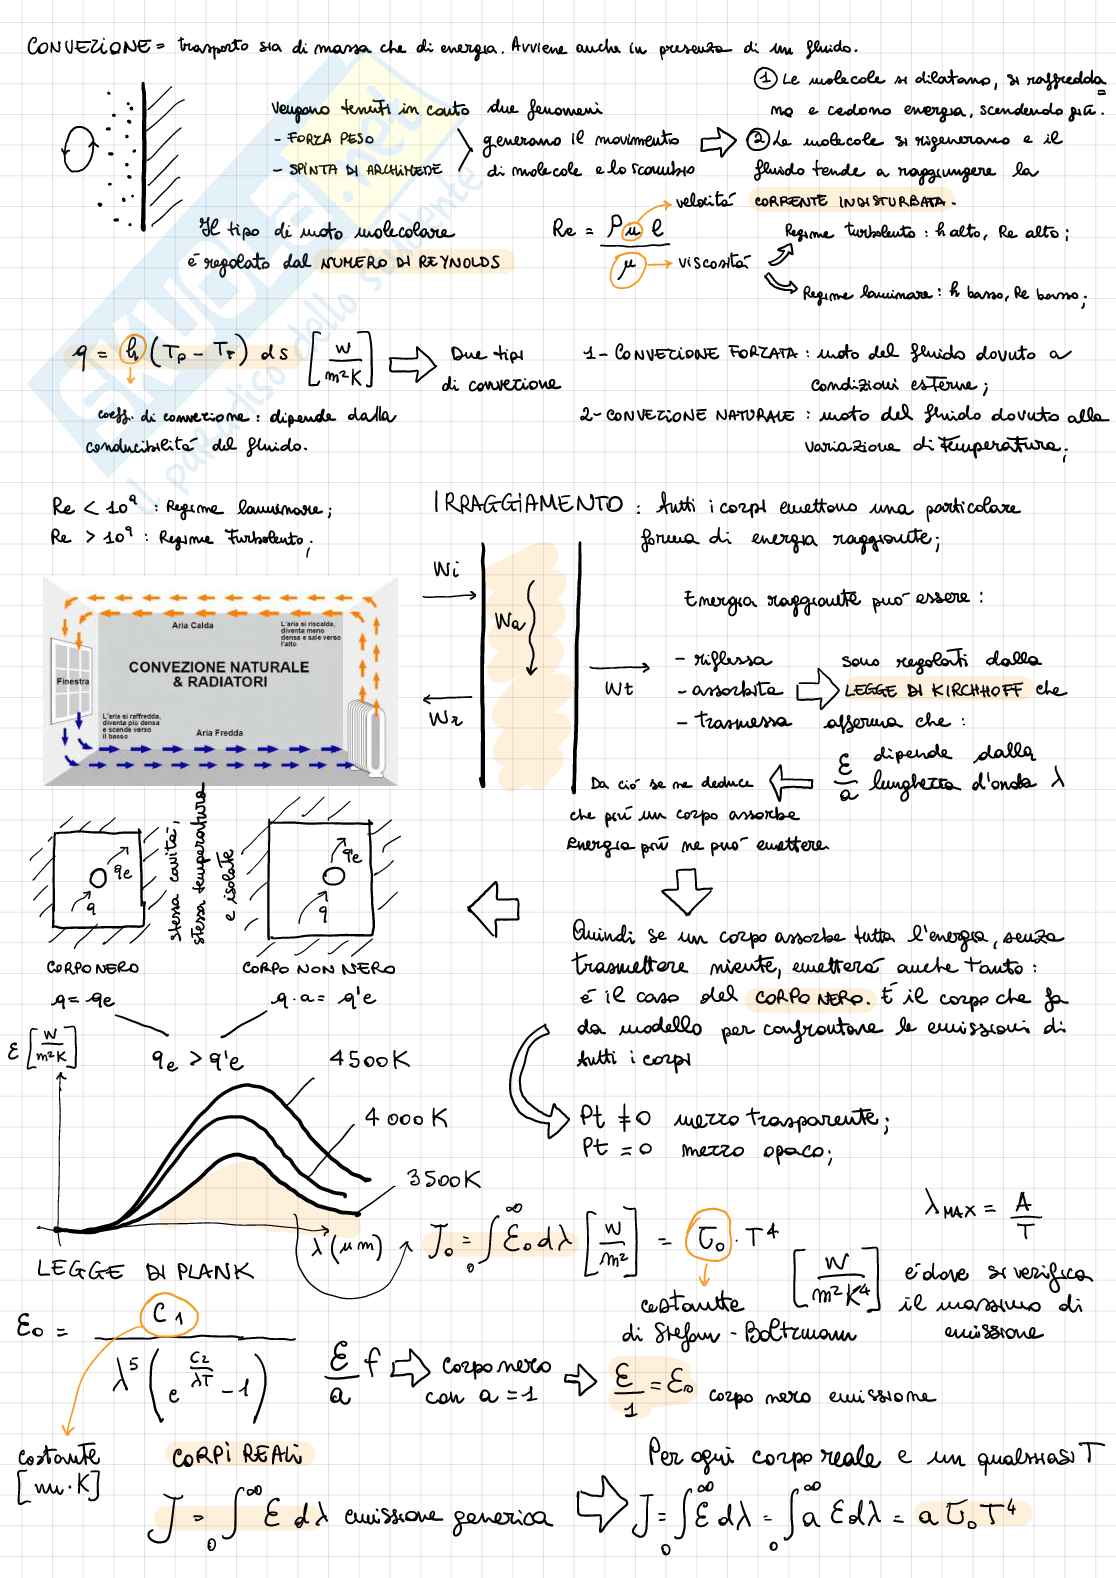 CONVEZIONE = trasporto sia di massa che di energia. Avviene anche in presenza di un fluido.
Vengono tenuti in conto due fenomeni
- FORZA PESO
- SPINTA DI ARCHIMEDE
generano il movimento
di molecole e lo scambio
① Le molecole si dilatano, si raffredda
no e cedono energia, scendendo giù.
② Le molecole si rigenerano e il
fluido tende a raggiungere la
CORRENTE INDISTURBATA.
Il tipo di moto molecolare
é regolato dal NUMERO DI REYNOLDS
Re = ρ u l / μ
velocitá
viscositá
Regime turbolento : h alto, Re alto;
Regime laminare : h basso, Re basso;
q = h (Tp - TF) ds [W/m²K]
coeff. di convezione : dipende dalla
conducibilitá del fluido.
Due tipi
di convezione
1- CONVEZIONE FORZATA : moto del fluido dovuto a
condizioni esterne;
2- CONVEZIONE NATURALE : moto del fluido dovuto alla
variazione di Temperatura;
Re < 10⁹ : Regime laminare;
Re > 10⁹ : Regime Turbolento;
IRRAGGIAMENTO : tutti i corpi emettono una particolare
forma di energia raggiante;
Aria Calda
L'aria si riscalda,
diventa meno
densa e sale verso
l'alto
CONVEZIONE NATURALE
& RADIATORI
Finestra
L'aria si raffredda,
diventa più densa
e scende verso
il basso
Aria Fredda
Wi
Wa
Wr
Wt
Energia raggiante puó essere :
- riflessa
- assorbita
- trasmessa
sono regolati dalla
LEGGE DI KIRCHHOFF che
afferma che :
ε/a dipende dalla
lunghezza d'onda λ
Da ció se ne deduce
che piú un corpo assorbe
energia piú ne puó emettere.
qe
q
stessa cavitá,
stessa temperatura
e isolate
q'e
q
CORPO NERO
q = qe
CORPO NON NERO
q · a = q'e
qe > q'e
Quindi se un corpo assorbe tutta l'energia, senza
trasmettere niente, emetterá anche tanto :
é il caso del CORPO NERO. É il corpo che fa
da modello per confrontare le emissioni di
tutti i corpi
Pt ≠ 0 mezzo trasparente;
Pt = 0 mezzo opaco;
ε [W/m²K]
4500K
4000K
3500K
λ (μm)
LEGGE DI PLANK
J₀ = ∫₀^∞ ε₀ dλ [W/m²] = σ₀ · T⁴
costante
di Stefan - Boltzmann
[W/m²K⁴]
λMAX = A/T
é dove si verifica
il massimo di
emissione
ε₀ = C1 / λ⁵ (e^(C2/λT) - 1)
costante
[m · K]
ε/a f
corpo nero
con a = 1
ε/1 = ε₀ corpo nero emissione
CORPI REALI
J = ∫₀^∞ ε dλ emissione generica
Per ogni corpo reale e un qualsiasi T
J = ∫₀^∞ ε dλ = ∫₀^∞ a ε dλ = a σ₀ T⁴